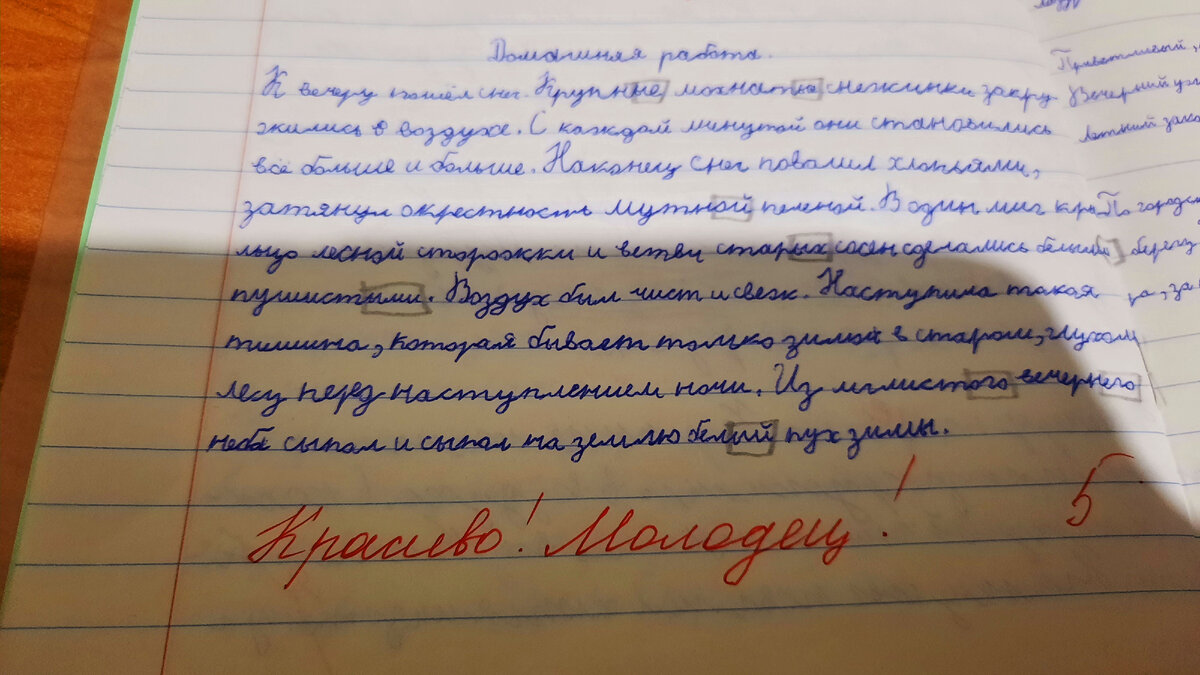 Домашняя работа.
К вечеру пошёл снег. Крупные мохнатые снежинки закру-
жились в воздухе. С каждой минутой они становились
всё больше и больше. Наконец снег повалил хлопьями,
затянул окрестность мутной пеленой. В один миг кры-
льцо лесной сторожки и ветви старых сосен сделались белыми
пушистыми. Воздух был чист и свеж. Наступила такая
тишина, которая бывает только зимой в старом, глухом
лесу перед наступлением ночи. Из мглистого вечернего
неба сыпал и сыпал на землю белый пух зимы.
Красиво! Молодец! 5
Приветливый,
Вечерний
Летний
По
берегу
за